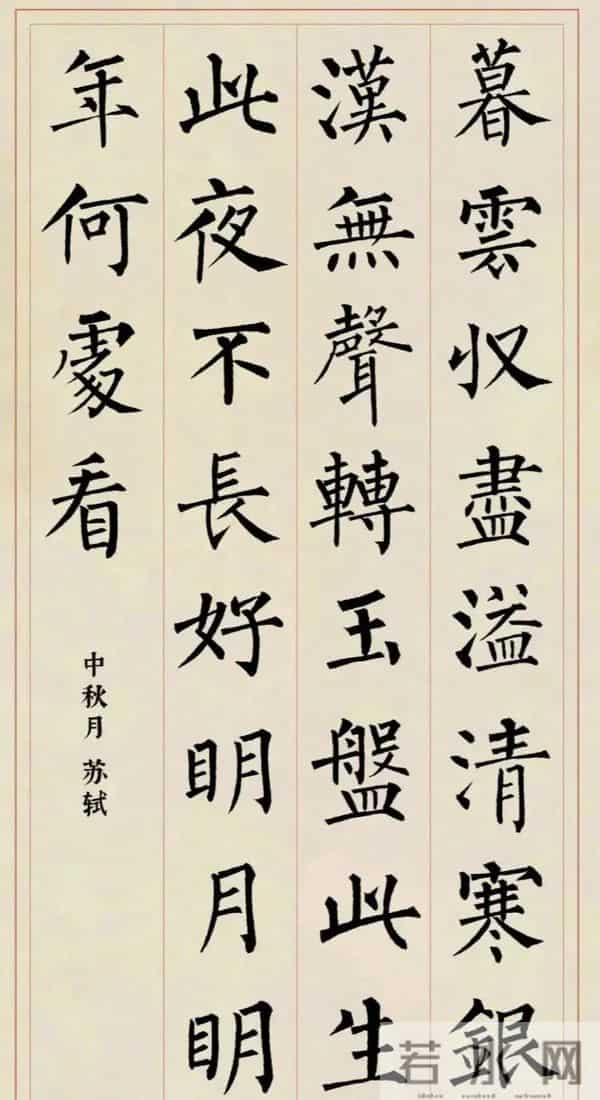 暮雲収盡溢清寒銀
漢無聲轉玉盤此生
此夜不長好明月明
年何處看
中秋月 苏轼